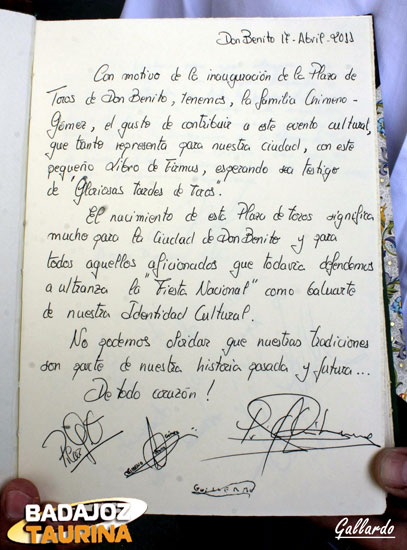 Don Benito 17-Abril-2011
Con motivo de la inauguración de la Plaza de
Toros de Don Benito, tenemos, la familia Chimeno-
Gómez, el gusto de contribuir a este evento cultural,
que tanto representa para nuestra ciudad, con este
pequeño Libro de Firmas, esperando sea testigo
de "Gloriosas tardes de Toros".
El nacimiento de esta Plaza de toros significa
mucho para la Ciudad de Don Benito y para
todos aquellos aficionados que todavía defendemos
a ultranza la "Fiesta Nacional" como baluarte
de nuestra Identidad Cultural.
No podemos olvidar que nuestras tradiciones
son parte de nuestra historia pasada y futura...
De todo corazón!
BADAJOZ
TAURINA
Gallardo